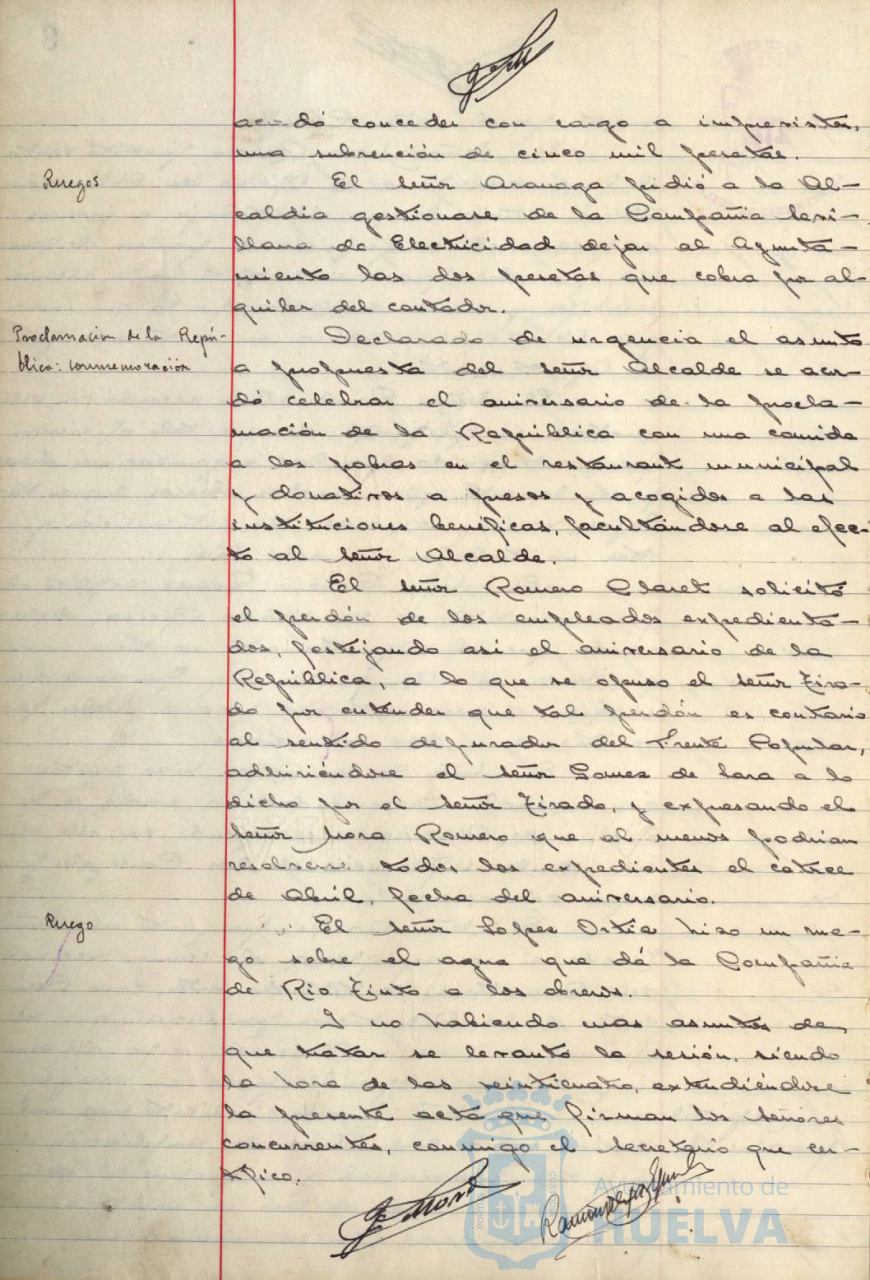 acordó conceder con cargo a imprevistos,
una subvención de cinco mil pesetas.
Ruegos
El señor Aranaga pidió a la Al-
caldia gestionase de la Compañia Sevi-
llana de Electricidad dejar al Ayunta-
miento las dos pesetas que cobra por al-
quiler del contador.
Proclamacion de la Repú-
blica: conmemoración
Declarado de urgencia el asunto
a propuesta del señor Alcalde se acor-
dó celebrar el aniversario de la procla-
mación de la República con una comida
a los pobres en el restaurant municipal
y donativos a presos y acogidos a las
instituciones benéficas, facultándose al efec-
to al señor Alcalde.
El señor Romero Claret solicitó
el perdón de los empleados expedienta-
dos, festejando asi el aniversario de la
República, a lo que se opuso el señor Tira-
do por entender que tal perdón es contrario
al sentido depurador del Frente Popular,
adhiriéndose el señor Gomez de Lara a lo
dicho por el señor Tirado, y expresando el
señor Mora Romero que al menos podrian
resolverse todos los expedientes el catorce
de Abril, fecha del aniversario.
Ruego
El señor Lopez Ortiz hizo un rue-
go sobre el agua que dá la Compañia
de Rio Tinto a los obreros.
Y no habiendo mas asuntos de
que tratar se levantó la sesión, siendo
la hora de las veinticuatro, extendiéndose
la presente acta que firman los señores
concurrentes, conmigo el Secretario que cer-
tifico.
J. Mora
Ayuntamiento de
HUELVA